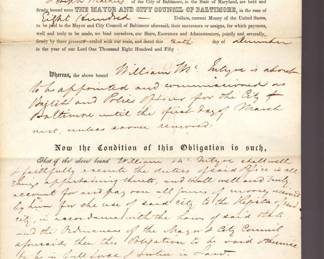 of the City of Baltimore, in the State of Maryland, are held and
firmly bound unto THE MAYOR AND CITY COUNCIL OF BALTIMORE, in the sum of
Eight Hundred Dollars, current Money of the United States,
to be paid to the Mayor and City Council of Baltimore aforesaid, their successors or assigns, for which payment,
well and truly to be made, we bind ourselves, our Heirs, Executors and Administrators, jointly and severally,
firmly by these presents—sealed with our seals, and dated this day of December
in the year of our Lord One Thousand Eight Hundred and Fifty
Whereas, the above bound William Mc Intyre is about
to be appointed and commissioned as
and Police Officer for the City of
Baltimore until the first day of March
next, unless sooner removed.
Now the Condition of this Obligation is such,
That if the above bound William Mc Intyre shall well
& faithfully execute the duties of said Office in all
things appertaining thereto, and shall well and truly
account for and pay over all sums of money received
by him for the use of said city to the Register of said
city, in accordance with the Laws of said State
and the Ordinances of the Mayor & City Council
aforesaid then this Obligation to be void otherwise
to be in full force & virtue in Law.